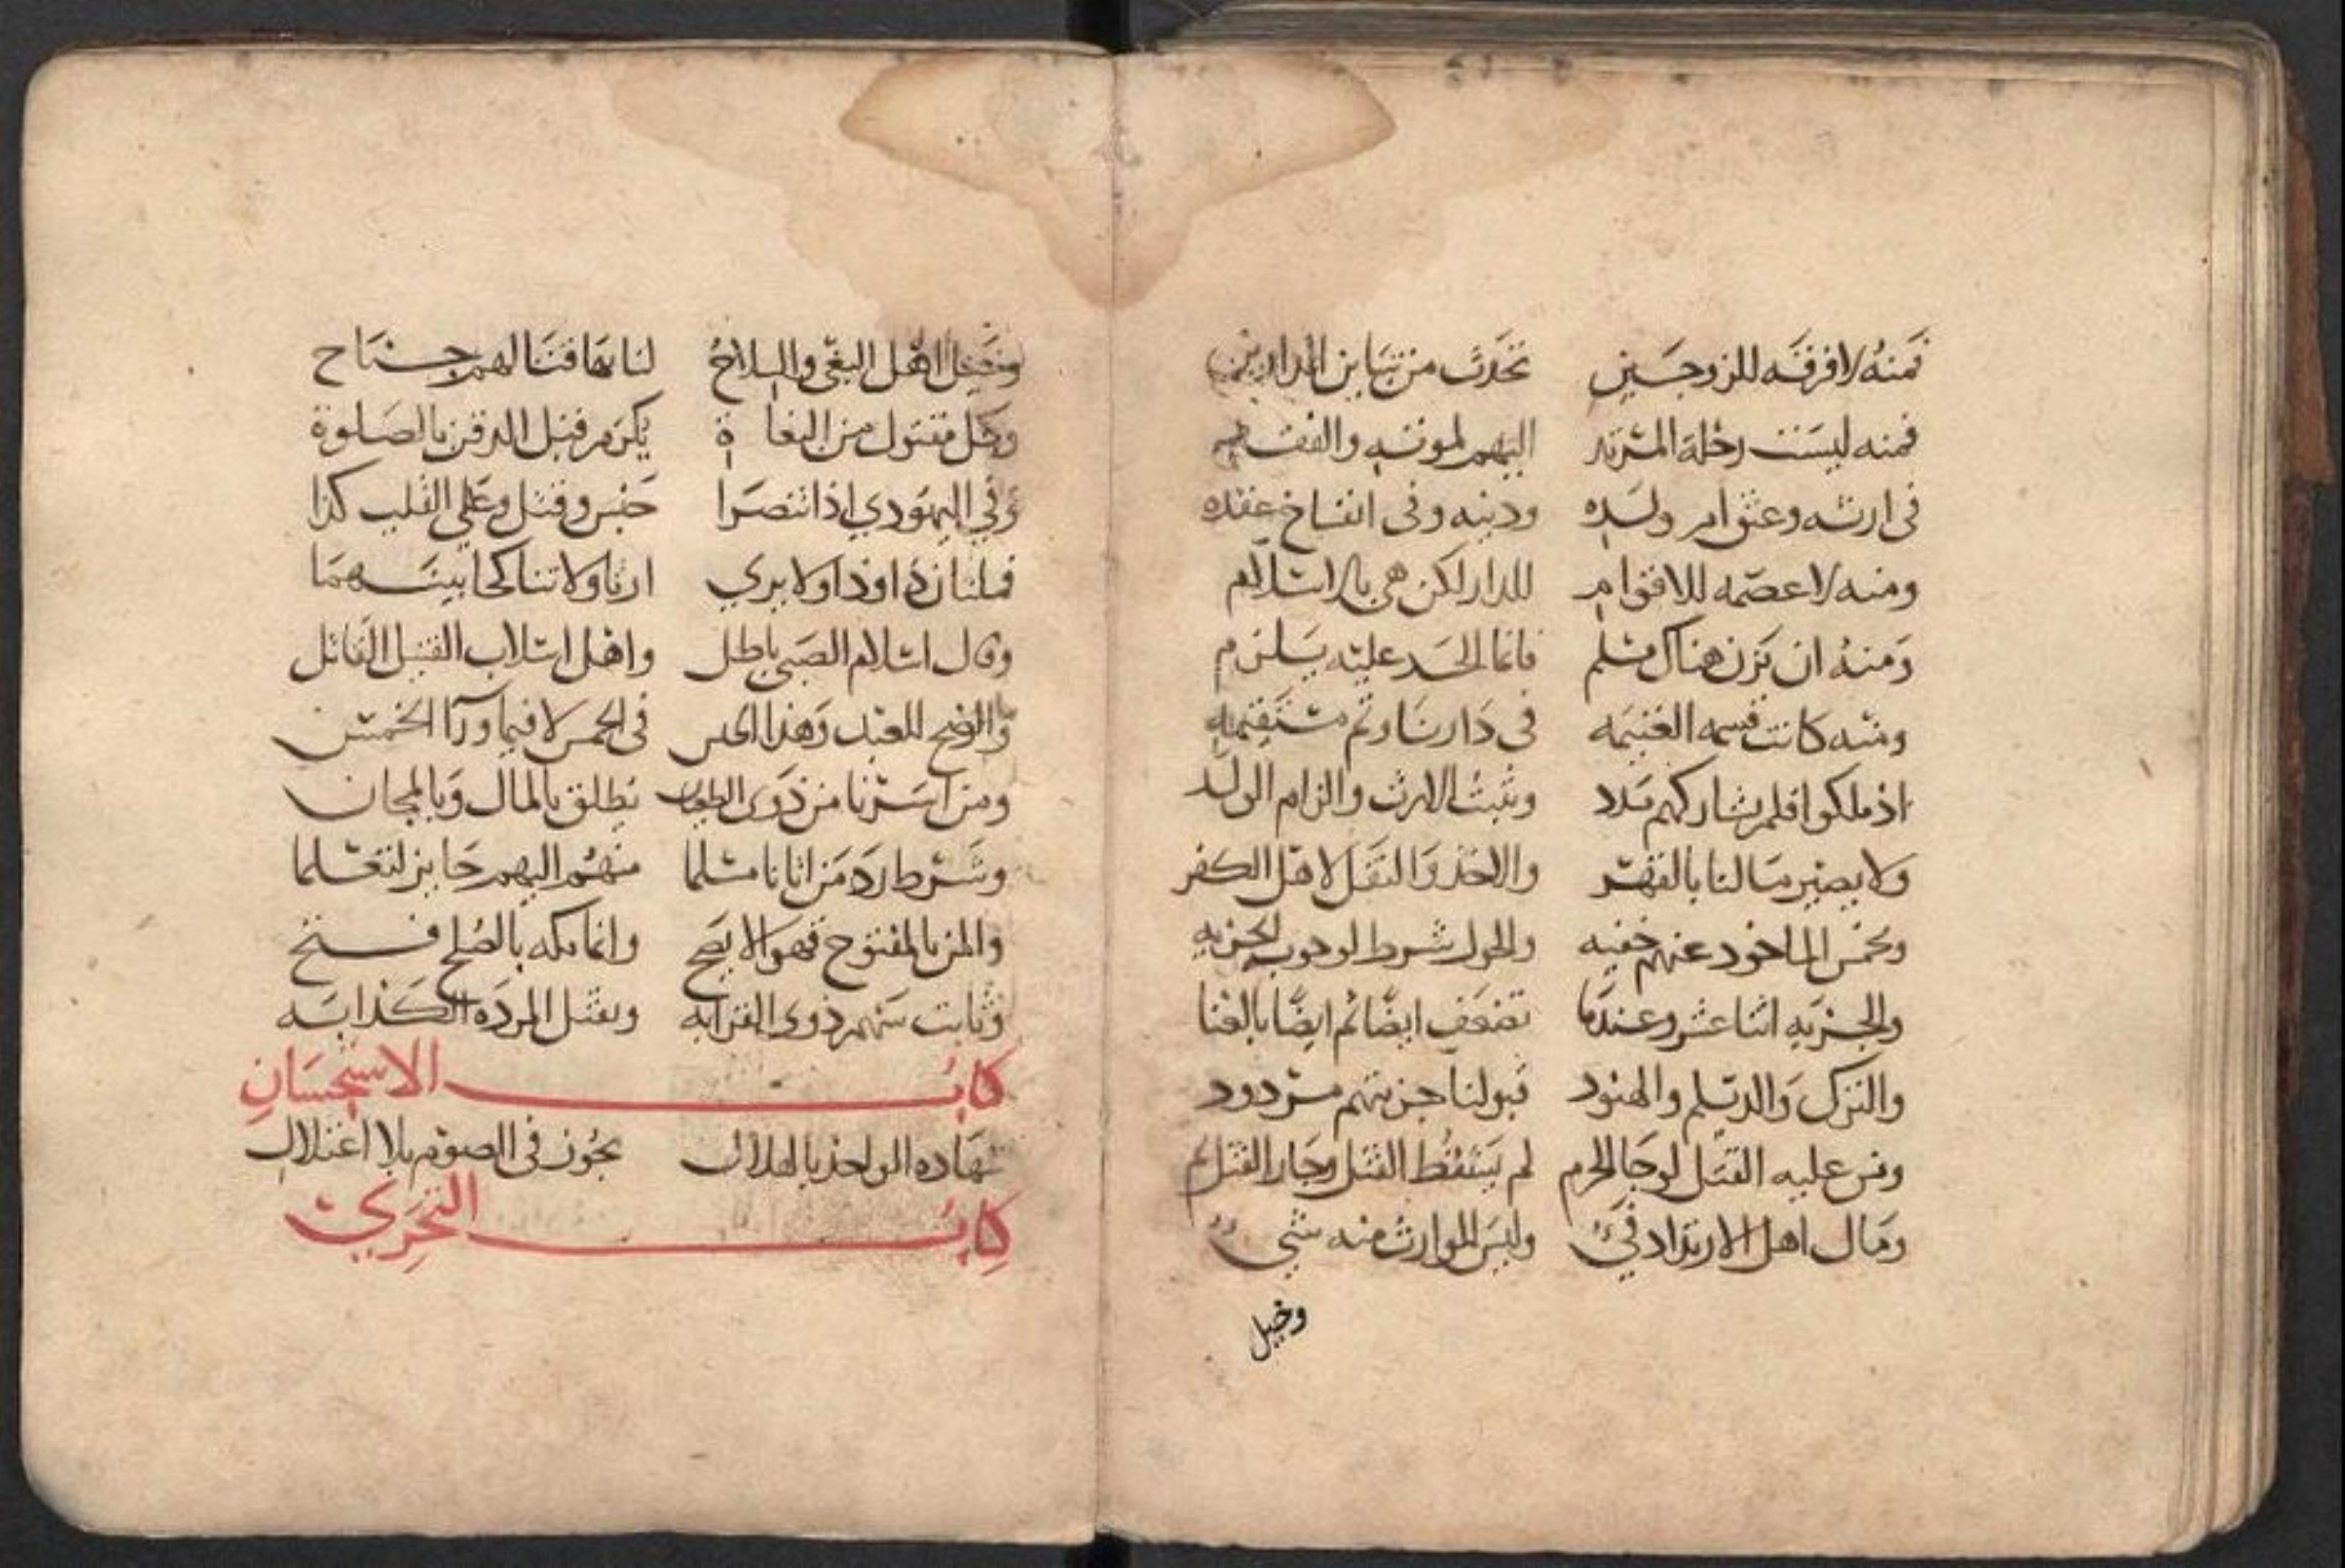 فمنه لا فرقة للزوجين تحدث من تباين الدارين
فمنه ليست رحلة المرتد اليهم لموته والفقد
فى ارثه وعتق ام ولده ودينه وفى انفساخ عقده
ومنه لا عصمة للاقوام للدار لكن هى بالاسلام
ومنه ان يزن هناك مسلم فانما الحد عليه يلزم
ومنه كانت قسمة الغنيمه فى دارنا وثم مستقيمه
اذ ملكوا فلم يشاركهم مدد ويثبت الارث والزام الولد
ولا يصير مالنا بالقهر والاخذ والنقل لاهل الكفر
وخمس الماخوذ عنهم خفيه والحول شرط لوجوب الجزيه
والجزيه اثنا عشر وعندنا تضعف ايضا ثم ايضا بالغنا
والترك والديلم والهنود قبولنا جزيتهم مردود
ومن عليه القتل لو جا الحرم لم يسقط القتل وجاز القتل ثم
ومال اهل الارتداد فيء وليس للوارث منه شيء
وخيل
وخيل اهل البغى والسلاح لنا بها قتالهم جناح
وكل مقتول من البغاة يكرم قبل الدفن بالصلوة
وفي اليهودي اذا تنصرا حبس وقتل وعلى القلب كذا
ارثا ولا تناكحا بينهما
وقال اسلام الصبى باطل واهل اسلاب القتيل القاتل
والرضخ للعبد وهذا فى الخمس لا فيما ورآ الخمس
ومن اسرنا من ذوى يطلق بالمال وبالمجان
وشرط رد من اتانا مسلما منهم اليهم جايز لتعلما
والمن بالمفتوح فهو لا يصح وانما مكه بالصلح فتح
وثابت سهم ذوى القرابه ويقتل المرده الكذابه
كتاب الاستحسان
شهادة الواحد بالهلال يجوز فى الصوم بلا اعتلال
كتاب التحري